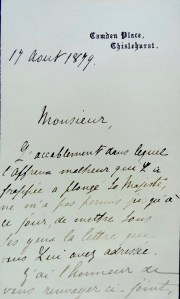 Camden Place,
Chislehurst.
17 Août 1879.
Monsieur,
L'accablement dans lequel
l'affreux malheur qui L'a
frappée a plongé Sa Majesté,
ne m'a pas permis jusqu'à
ce jour, de mettre sous
Ses yeux la lettre que
vous Lui avez adressée.
J'ai l'honneur de
vous renvoyer ci-joint,